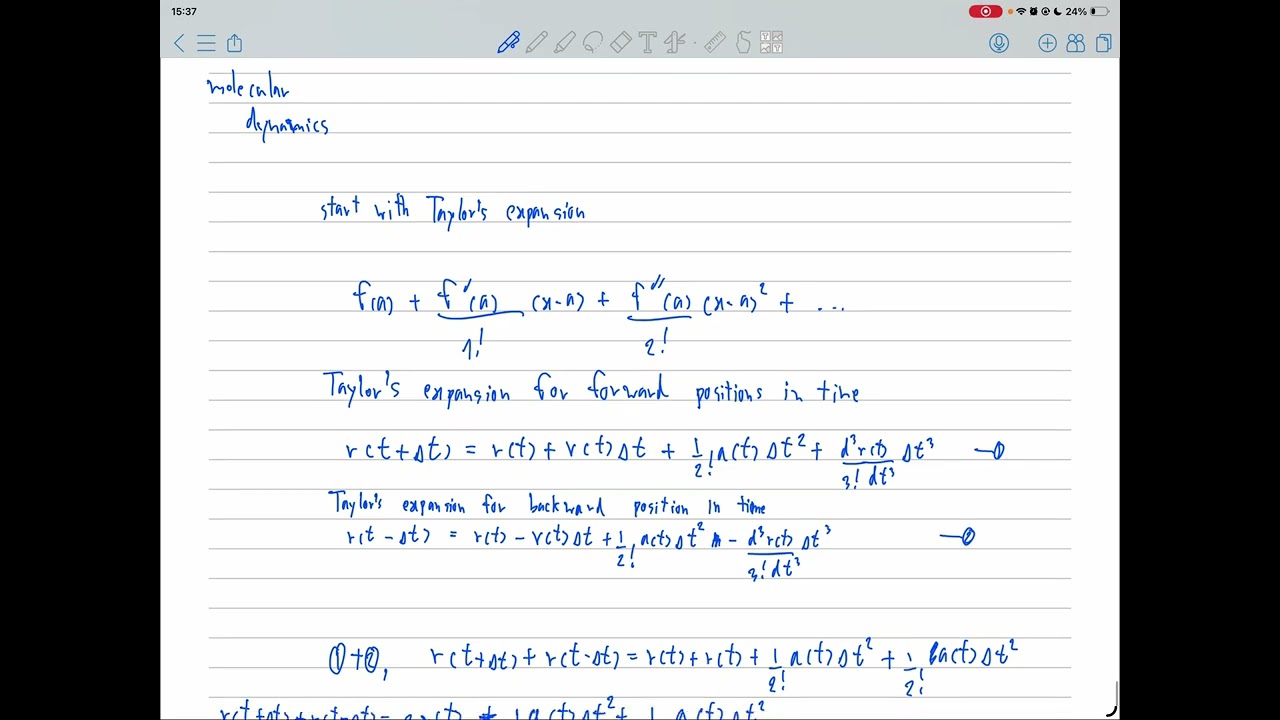 15:37
24%
molecular
dynamics
start with Taylor's expansion
f(a) + f'(a)/1! (x-a) + f''(a)/2! (x-a)² + ...
Taylor's expansion for forward positions in time
r(t+Δt) = r(t) + v(t)Δt + 1/2! a(t)Δt² + d³r(t)/3!dt³ Δt³ —①
Taylor's expansion for backward position in time
r(t-Δt) = r(t) - v(t)Δt + 1/2! a(t)Δt² - d³r(t)/3!dt³ Δt³ —②
①+②, r(t+Δt) + r(t-Δt) = r(t) + r(t) + 1/2! a(t)Δt² + 1/2! a(t)Δt²